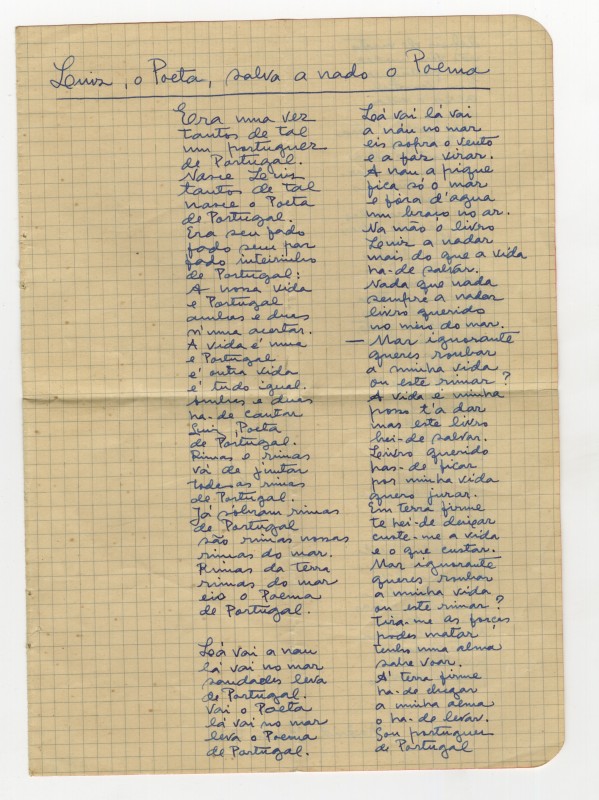 Luis, o Poeta, salva a nado o Poema
Era uma vez
tantos de tal
um portuguez
de Portugal.
Nasce Luis
tantos de tal
nasce o Poeta
de Portugal.
Era seu fado
fado sem par
fado inteirinho
de Portugal:
A nossa vida
e Portugal
ambas e duas
n'uma acertar.
A vida é uma
e Portugal
é outra vida
é tudo igual.
Ambas e duas
ha-de cantar
Luis, Poeta
de Portugal.
Rimas e rimas
vá de juntar
todas as rimas
de Portugal.
Já sóbram rimas
de Portugal
são rimas nossas
rimas do mar.
Rimas da terra
rimas do mar
eis o Poema
de Portugal.
Lá vai a nau
lá vai no mar
saudades leva
de Portugal.
Vai o Poeta
lá vai no mar
leva o Poema
de Portugal.
Lá vai lá vai
a náu no mar
eis sopra o vento
e a faz virar.
A nau a pique
fica só o mar
e fóra d'agua
um braço no ar.
Na mão o livro
Luis a nadar
mais do que a vida
ha-de salvar.
Nada que nada
sempre a nadar
livro querido
no meio do mar.
— Mar ignorante
queres roubar
a minha vida
ou este rimar?
A vida é minha
posso t'a dar
mas este livro
hei-de salvar.
Livro querido
has-de ficar
por minha vida
quero jurar.
Em terra firme
te hei-de deixar
custe-me a vida
e o que custar.
Mar ignorante
queres roubar
a minha vida
ou este rimar?
Tira-me as forças
podes matar
tenho uma alma
sabe voar.
À terra firme
ha-de chegar
a minha alma
o ha-de levar.
Sou portuguez
de Portugal